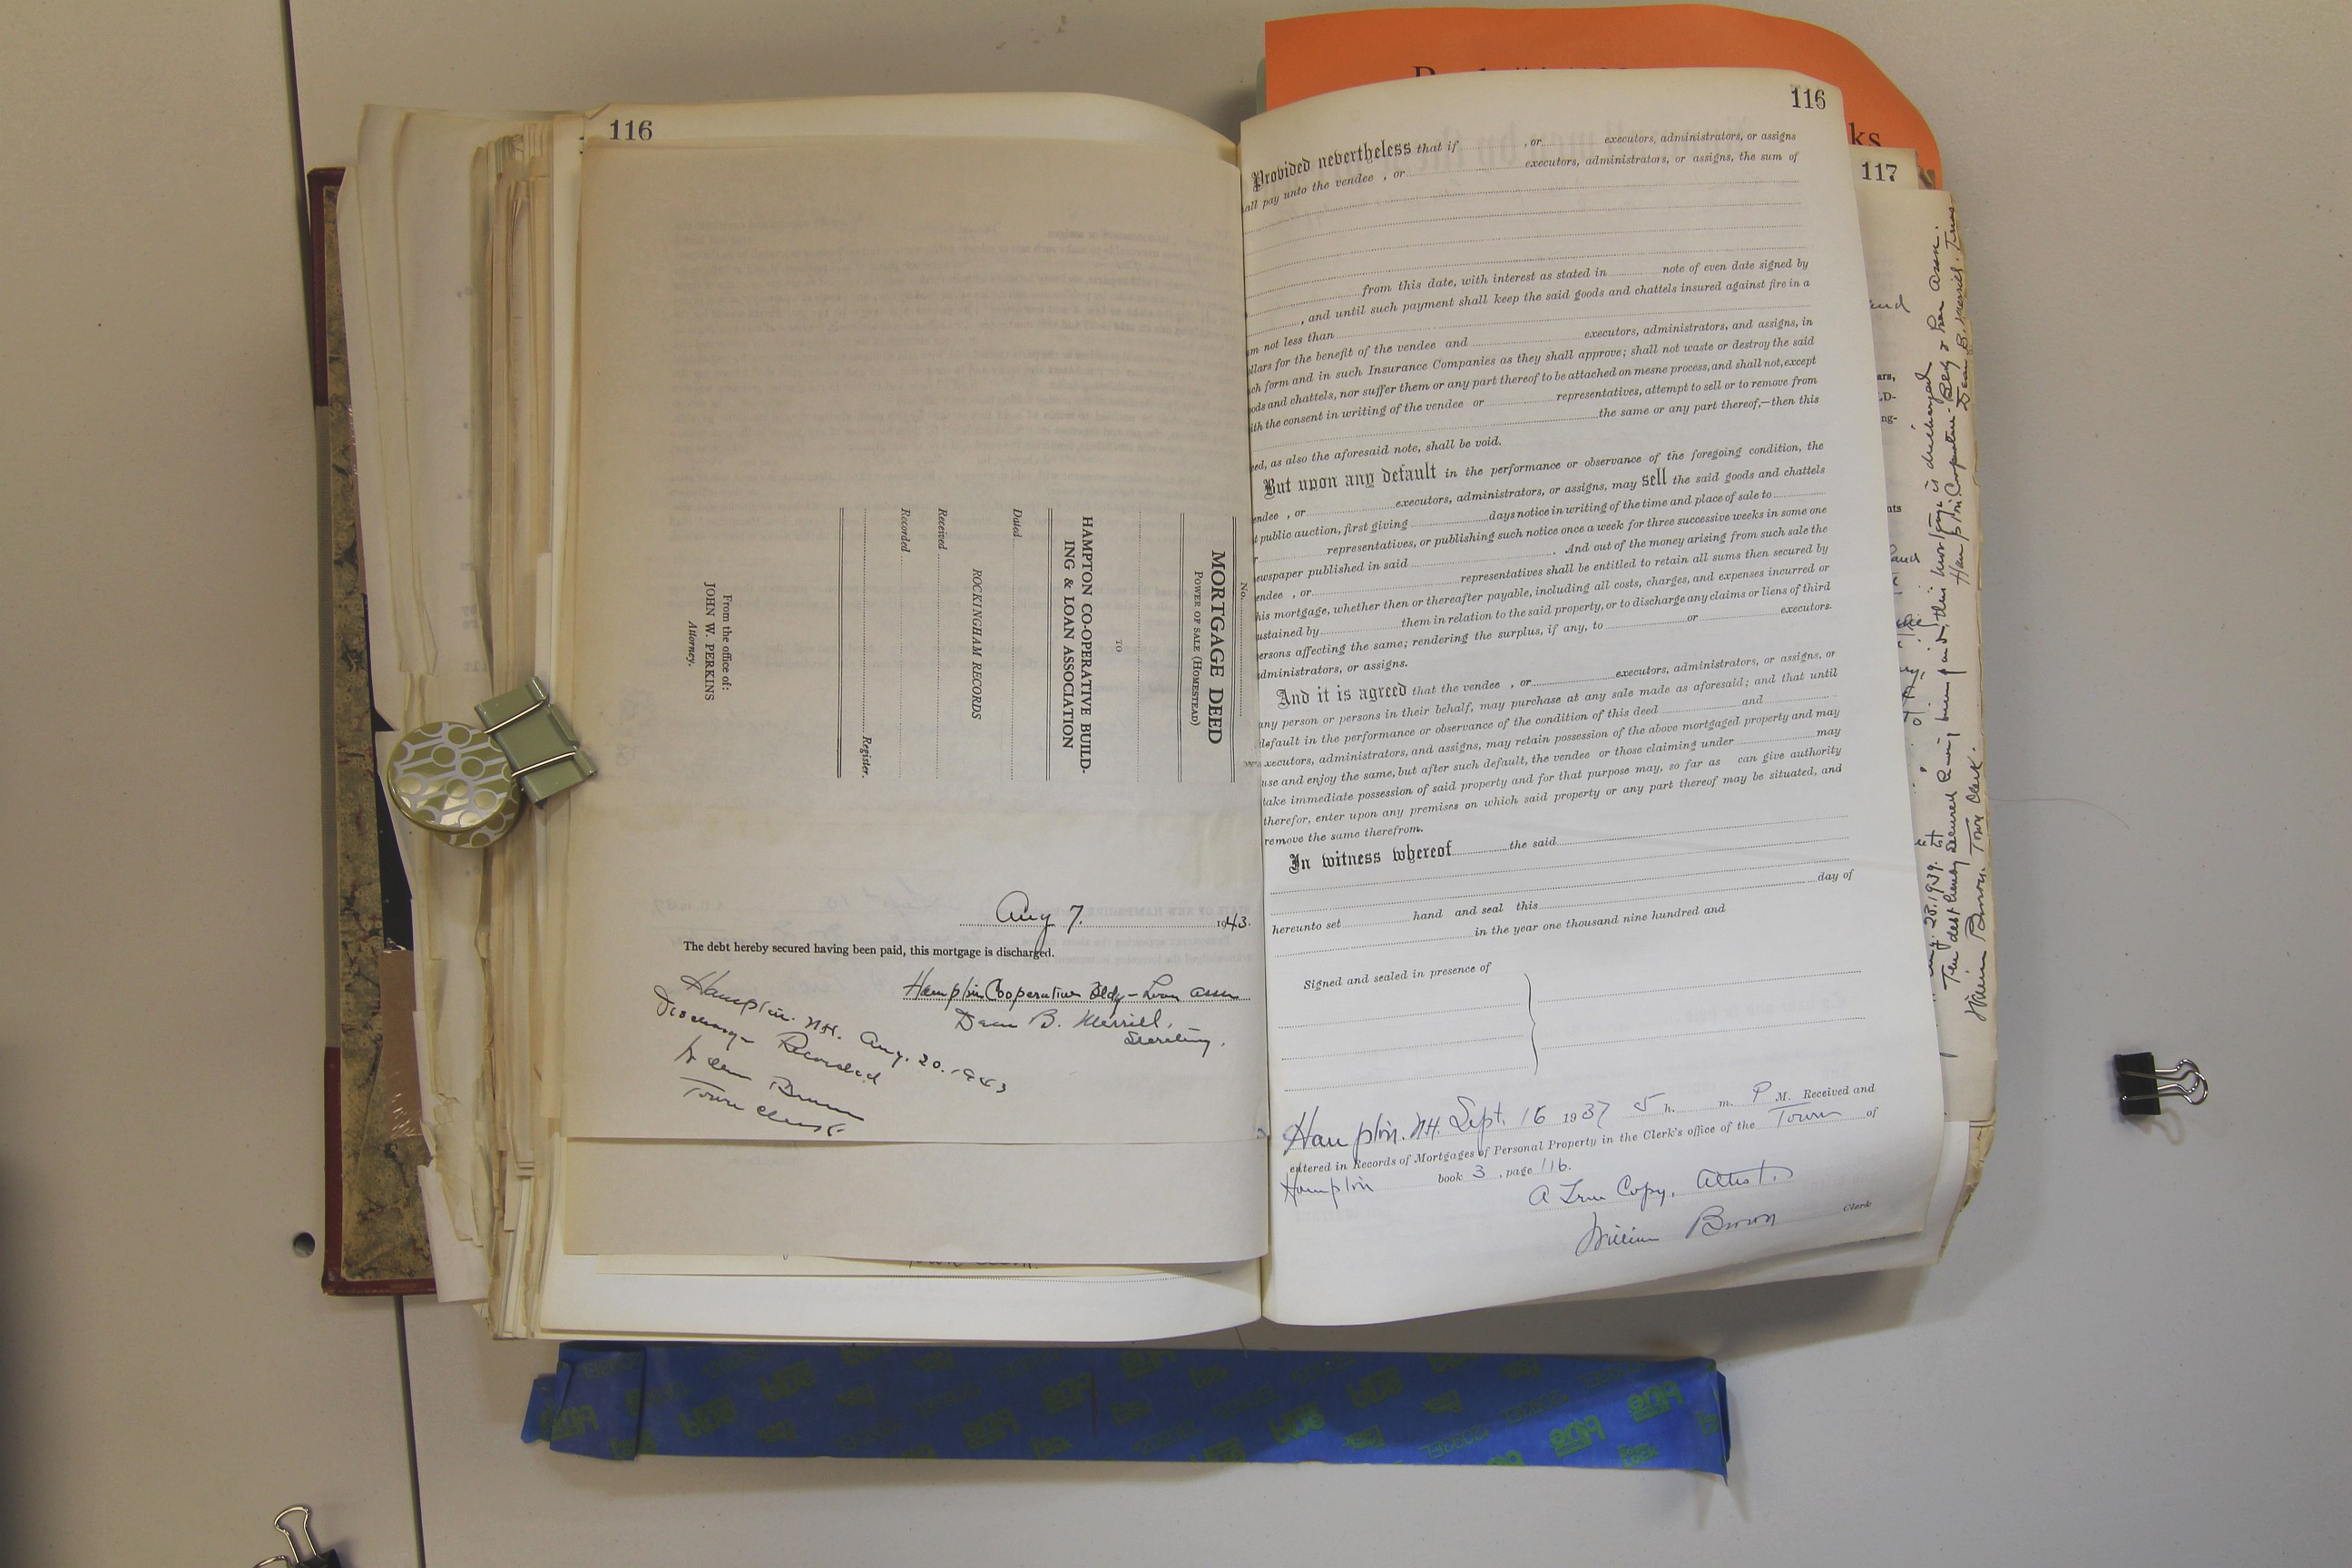 116
No.
MORTGAGE DEED
POWER OF SALE (HOMESTEAD)
TO
HAMPTON CO-OPERATIVE BUILD-
ING & LOAN ASSOCIATION
Dated
ROCKINGHAM RECORDS
Received
Recorded
Register.
From the office of:
JOHN W. PERKINS
Attorney.
Aug 7. 1943.
The debt hereby secured having been paid, this mortgage is discharged.
Hampton Cooperative Bldg - Loan assn
Dean B. Merrill,
Secretary.
Hampton. N.H. Aug. 20. 1943
Discharge Recorded
William Brown
Town Clerk
116
Provided nevertheless that if , or executors, administrators, or assigns
all pay unto the vendee , or executors, administrators, or assigns, the sum of
from this date, with interest as stated in note of even date signed by
, and until such payment shall keep the said goods and chattels insured against fire in a
m not less than
ollars for the benefit of the vendee and executors, administrators, and assigns, in
ch form and in such Insurance Companies as they shall approve; shall not waste or destroy the said
ods and chattels, nor suffer them or any part thereof to be attached on mesne process, and shall not, except
ith the consent in writing of the vendee or representatives, attempt to sell or to remove from
the same or any part thereof,—then this
ed, as also the aforesaid note, shall be void.
But upon any default in the performance or observance of the foregoing condition, the
endee , or executors, administrators, or assigns, may sell the said goods and chattels
t public auction, first giving days notice in writing of the time and place of sale to
r representatives, or publishing such notice once a week for three successive weeks in some one
ewspaper published in said . And out of the money arising from such sale the
endee , or representatives shall be entitled to retain all sums then secured by
his mortgage, whether then or thereafter payable, including all costs, charges, and expenses incurred or
ustained by them in relation to the said property, or to discharge any claims or liens of third
ersons affecting the same; rendering the surplus, if any, to or executors.
dministrators, or assigns.
And it is agreed that the vendee , or executors, administrators, or assigns, or
any person or persons in their behalf, may purchase at any sale made as aforesaid; and that until
default in the performance or observance of the condition of this deed and
xecutors, administrators, and assigns, may retain possession of the above mortgaged property and may
use and enjoy the same, but after such default, the vendee or those claiming under may
take immediate possession of said property and for that purpose may, so far as can give authority
therefor, enter upon any premises on which said property or any part thereof may be situated, and
remove the same therefrom.
In witness whereof the said
hereunto set hand and seal this day of
in the year one thousand nine hundred and
Signed and sealed in presence of
Hampton. N.H. Sept. 16 1937 5 h. m. P M. Received and
entered in Records of Mortgages of Personal Property in the Clerk's office of the Town of
Hampton book 3 , page 116.
A True Copy, Attest.
William Brown Clerk
ks
117
and
ars,
LD-
ng-
nts
28. 1939.
The debt hereby secured having been paid, this mortgage is discharged
Hampton Cooperative Bldg & Loan Assn.
Dean B. Merrill. Treas
William Brown. Town Clerk.